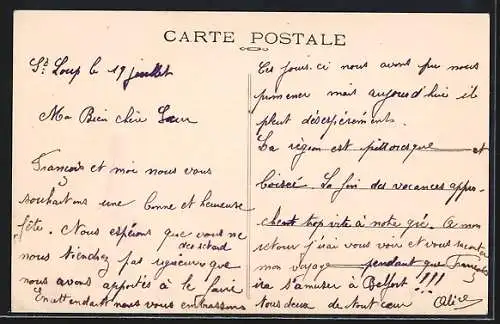 CARTE POSTALE
St Loup le 19 juillet
Ma Bien chère Sœur
François et moi nous vous
souhaitons une bonne et heureuse
fête. Nous espérons que vous ne
nous tiendrez pas rigueur que
du retard
nous avons apportés à le faire
En attendant nous vous embrassons
Ces jours-ci nous avons pu nous
promener mais aujourd'hui il
pleut désespérément.
La région est pittoresque et
boisée. La fin des vacances appro-
che trop vite à notre gré. A mon
retour j'irai vous voir et vous raconter
mon voyage pendant que François
ira s'amuser à Belfort !!!
Tous deux de tout cœur Alice